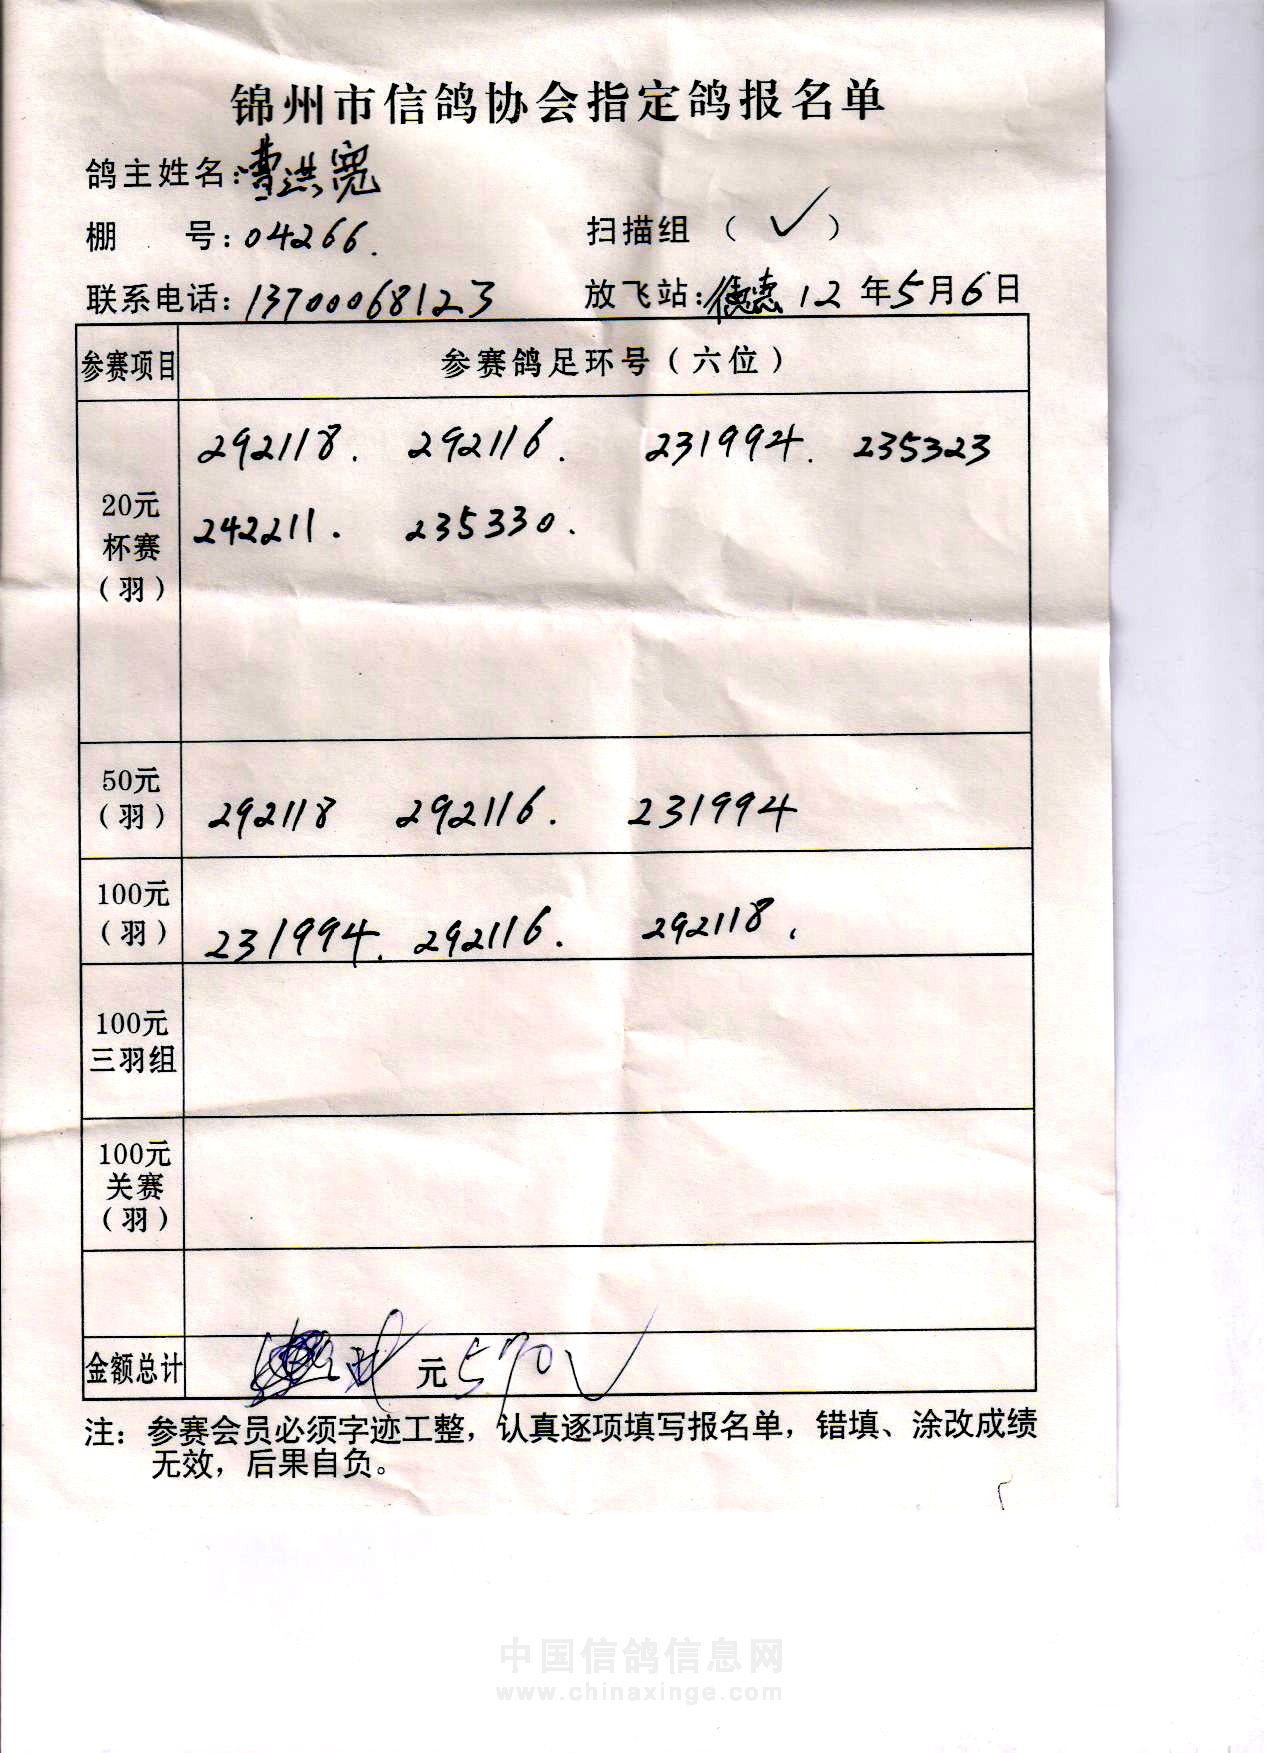 锦州市信鸽协会指定鸽报名单
鸽主姓名：曹洪宽
棚 号：04266. 扫描组（ ✓ ）
联系电话：13700068123 放飞站：德惠 12 年 5 月 6 日
参赛项目 参赛鸽足环号（六位）
20元
杯赛
（羽）
292118. 292116. 231994. 235323
242211. 235330.
50元
（羽）
292118 292116. 231994
100元
（羽）
231994. 292116. 292118.
100元
三羽组
100元
关赛
（羽）
金额总计 元 570 ✓
注：参赛会员必须字迹工整，认真逐项填写报名单，错填、涂改成绩
无效，后果自负。
中国信鸽信息网
www.chinaxinge.com